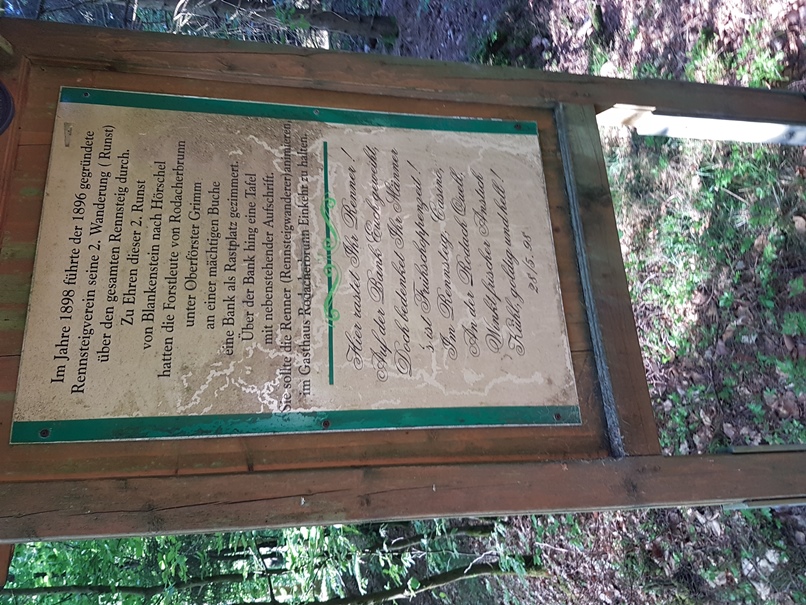 Im Jahre 1898 führte der 1896 gegründete
Rennsteigverein seine 2. Wanderung ( Runst)
über den gesamten Rennsteig durch.
Zu Ehren dieser 2. Runst
von Blankenstein nach Hörschel
hatten die Forstleute von Rodacherbrunn
unter Oberförster Grimm
an einer mächtigen Buche
eine Bank als Rastplatz gezimmert.
Über der Bank hing eine Tafel
mit nebenstehender Aufschrift.
Sie sollte die Renner (Rennsteigwanderer)animieren,
im Gasthaus Rodacherbrunn Einkehr zu halten.
Hier rastet Ihr Renner !
Auf der Bank Euch geweiht,
Doch bedenket Ihr Männer
's ist Frühschoppenzeit !
Im Rennsteig Casino,
An der Rodach Quell,
Winkt frischer Anstich
Kühl, goldig und hell !
21/5.98.